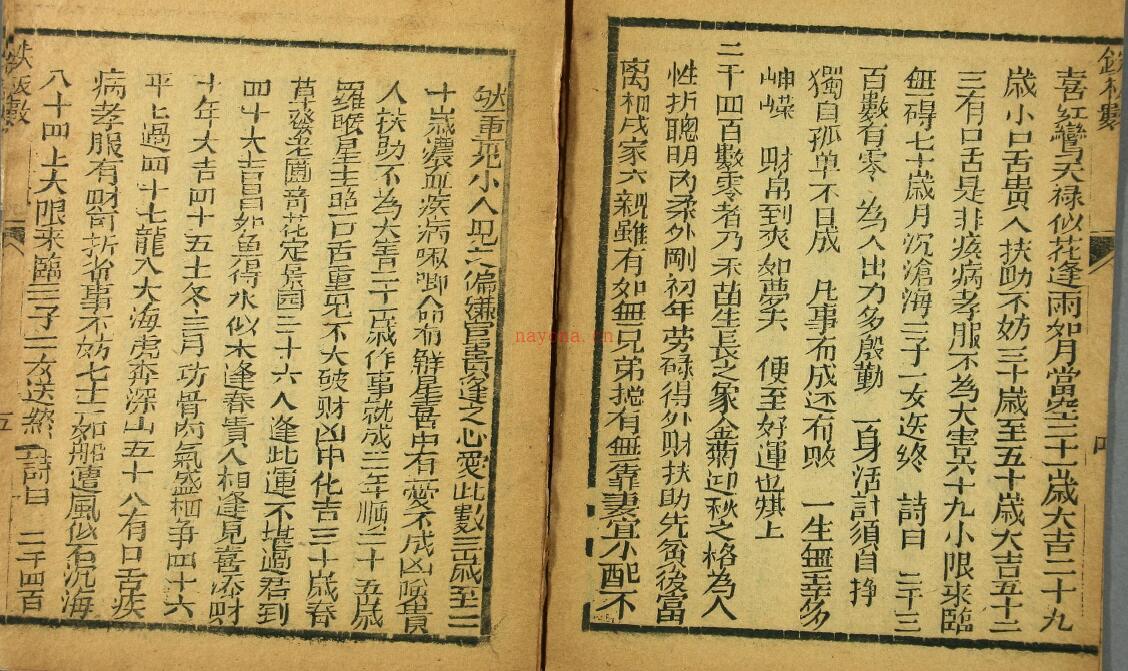 喜紅鸞天禄似花逢雨如月當空三十一歲大吉二十九
歲小口舌貴人扶助不妨三十歲至五十歲大吉五十二
三有口舌是非疾病孝服不為大害六十九小限來臨
無碍七十歲月沉滄海三子一女送終 詩曰 二千三
百數有零 為人出力多殷勤 一身活計須自挣
獨自孤单不日成 凡事有成还有敗 一生無幸多
峥嶸 財帛到爽如夢矣 便至好運也
二千四百數零者乃禾苗生長之象金菊迎秋之格為人
性折聰明内柔外剛初年劳碌得外財扶助先贫後富
离祖成家六親雖有如無兄弟摠有無靠妻宜小配不
然重犯小人见六偏嫌官貴逢之心愛此數三歲至二
十歲濃血疾病啾唧八命有觧星喜中有憂不成凶險貴
人扶助不為大害二十一歲作事就成三年順三十五歲
羅睺星主照口舌重见不大破财凶中化吉三十歲春
草發老園奇花定景园三十六人逢此運不堪過君到
四十大吉昌如魚得水似木逢春貴人相逢見喜添财
十年大吉四十五十冬三月功骨肉氣盛相争四十六
平上過四十七龍入大海虎奔深山五十八有口舌疾
病孝服有财可折省事不妨七十二如船遭風似石沉海
八十四上大限来臨三子二女送終 詩曰 二千四百
四
五
nayona.cn